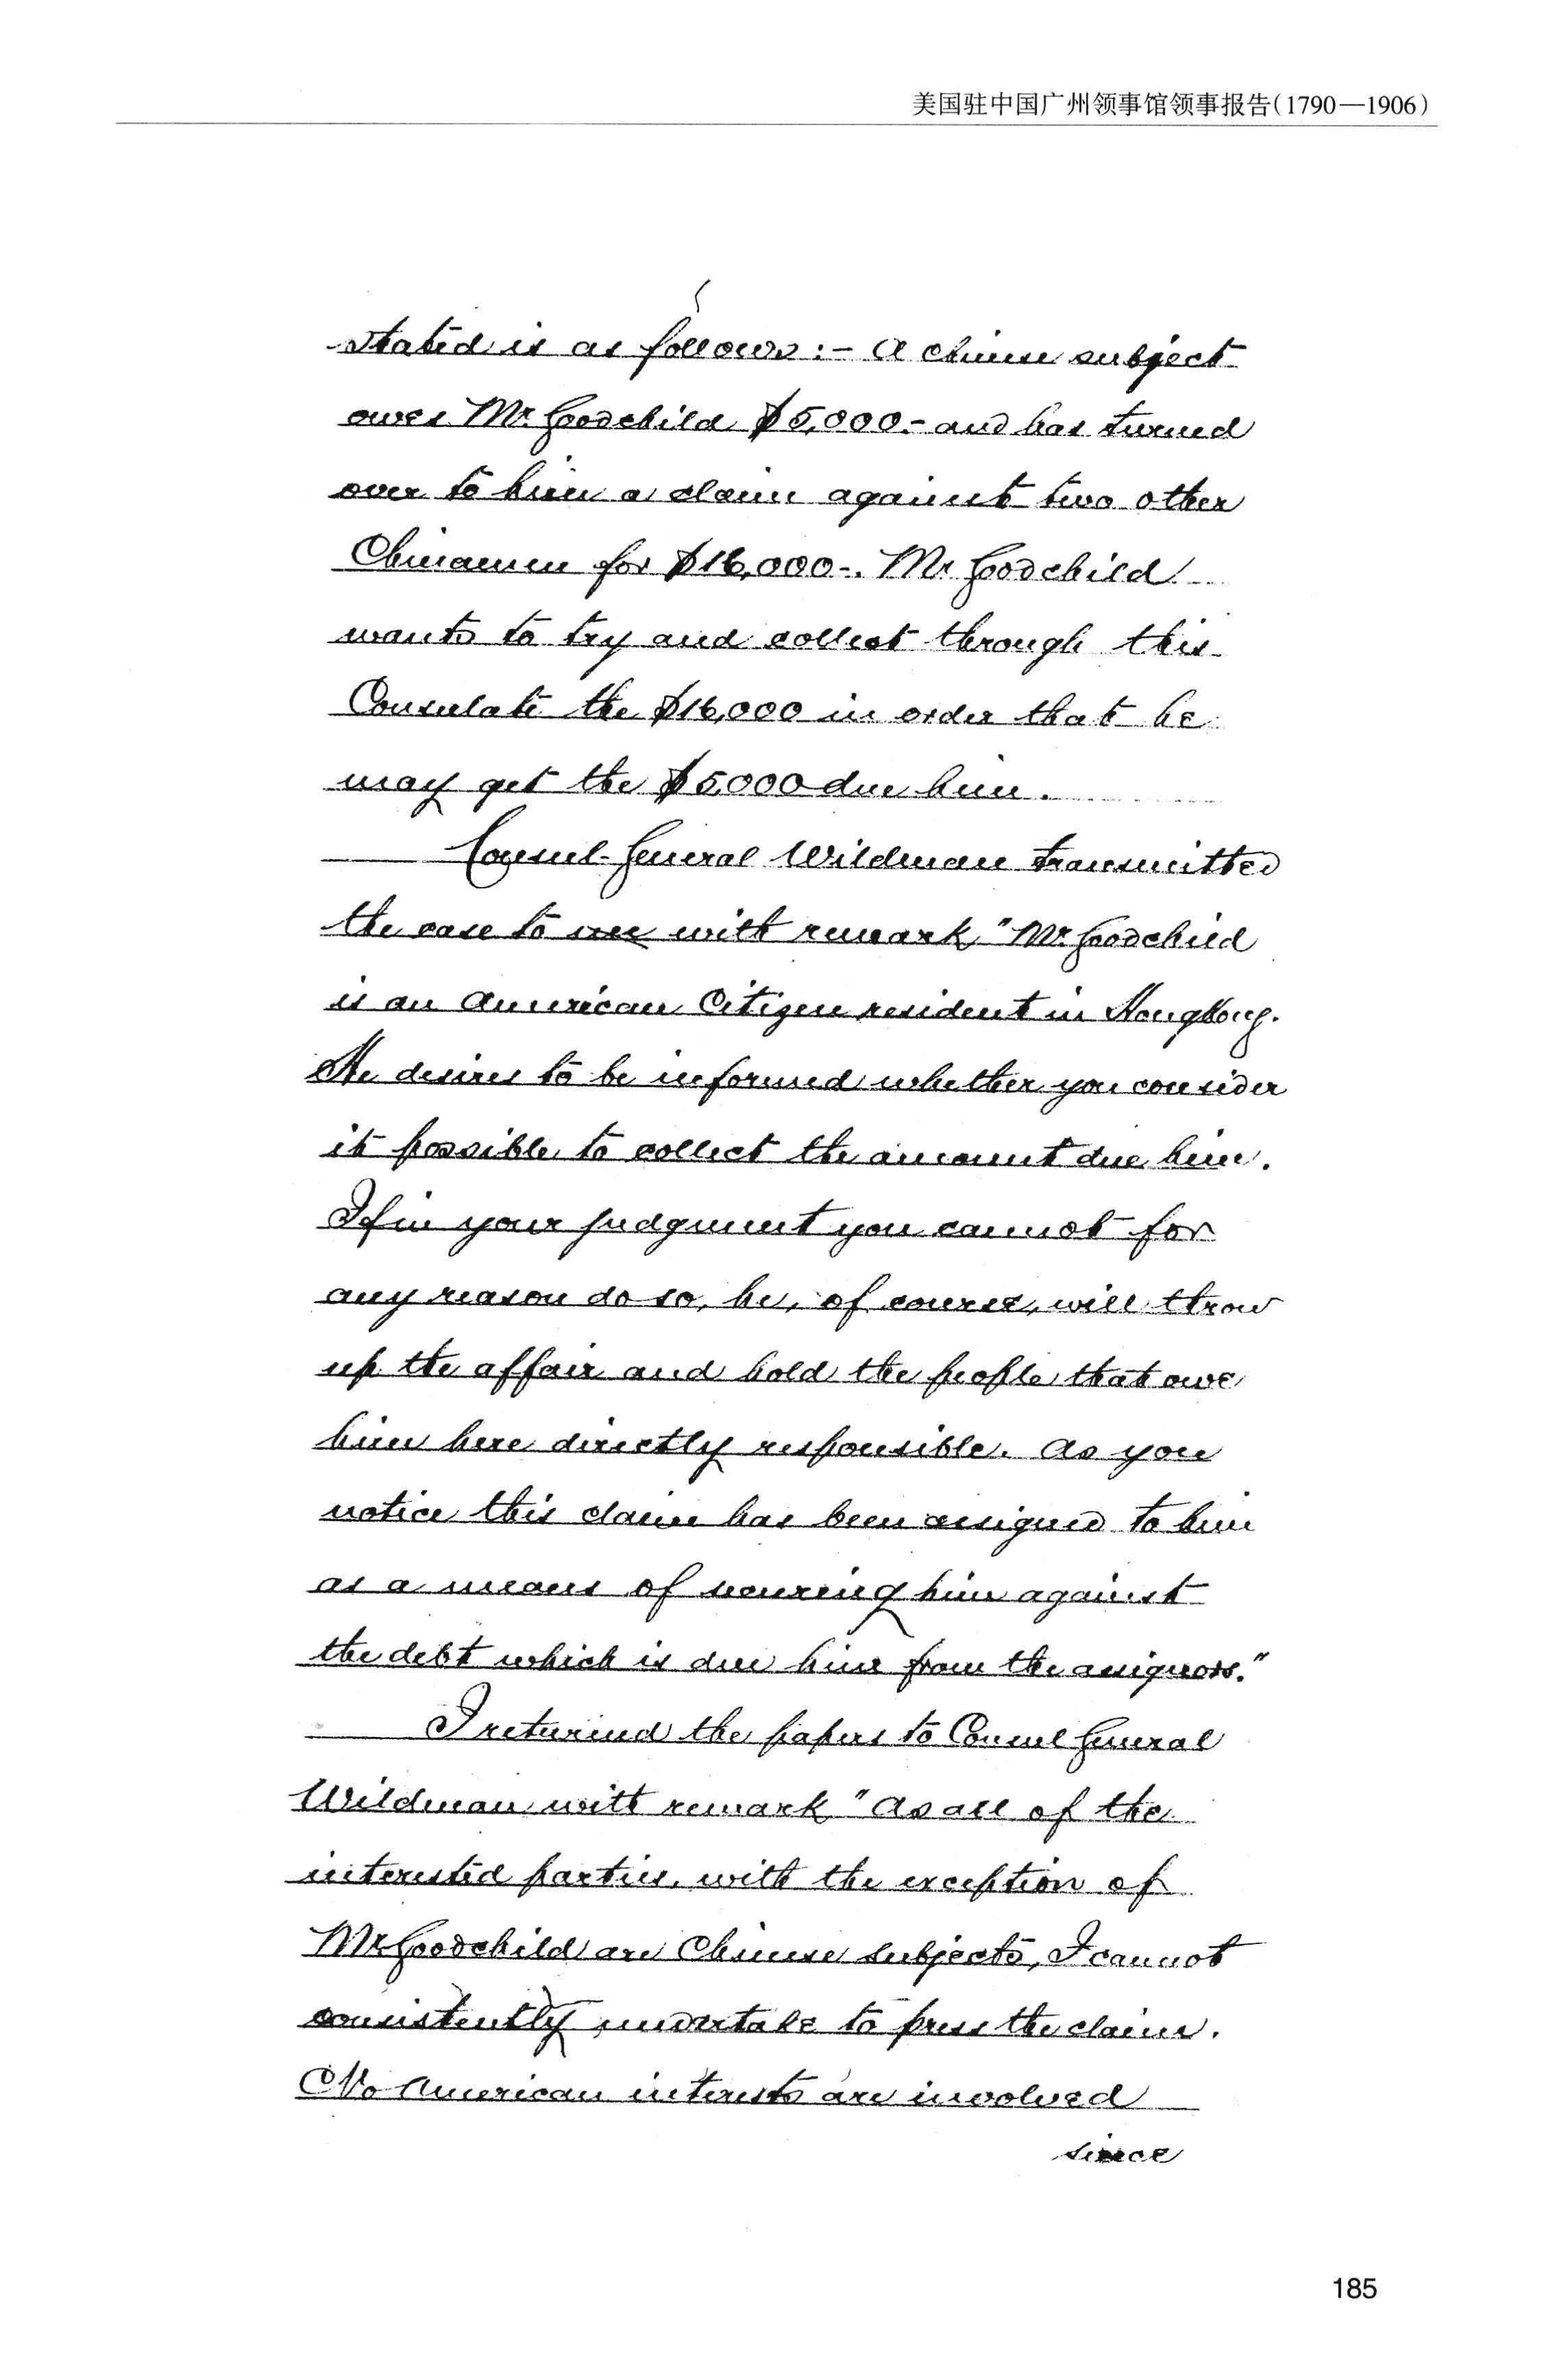 美国驻中国广州领事馆领事报告(1790—1906)
stated is as follows:- A chinese subject
owes Mr. Goodchild $5,000.- and has turned
over to him a claim against two other
Chinamen for $16,000-. Mr Goodchild
wants to try and collect through this
Consulate the $16,000 in order that he
may get the $5,000 due him.
Consul-General Wildman transmitted
the case to me with remark "Mr. Goodchild
is an American Citizen resident in HongKong.
He desires to be informed whether you consider
it possible to collect the amount due him.
If in your judgment you cannot for
any reason do so, he, of course, will throw
up the affair and hold the people that owe
him here directly responsible. As you
notice this claim has been assigned to him
as a means of securing him against
the debt which is due him from the assignors."
I returned the papers to Consul General
Wildman with remark "As all of the
interested parties, with the exception of
Mr Goodchild are Chinese subjects, I cannot
consistently undertake to press the claim.
No American interests are involved
since
185